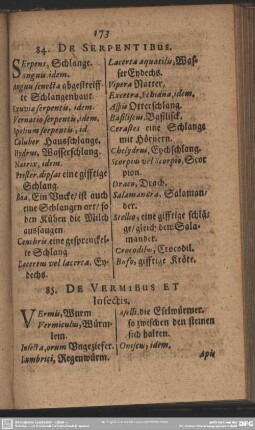 173
84. DE SERPENTIBUS.
SErpens, Schlange.
Sanguis idem.
Anguu senecta abgestreiff-
te Schlangenhaut.
Exuvia serpentis, idem.
Vernatio serpentis, idem.
Spolium serpentis, id
Coluber Haußschlange.
Hydrus, Wasserschlang.
Natrix, idem.
eine gifftige
Schlang.
Boa, Ein Uncke/ ist auch
eine Schlangen art/ so
den Kühen die Milch
aussaugen.
Cenchris, eine gesprenckel-
te Schlang
Lacerta vel lacerta, Ey-
dechs.
Lacerta aquatilis, Was-
ser Eydechs.
Vipera Natter.
Excetra, Echidna, idem.
Aspis Otterschlang.
Basiliscus, Basilisck.
Cerastes eine Schlange
mit Hörnern.
Chelydrus, Eychschlang.
Scorpius vel Scorpio, Scor
pion.
Draco, Drach.
Salamandra, Salaman-
der.
Stellio, eine gifftige schlän-
ge/ gleich dem Sala-
mander.
Crocodilus, Crocodil.
Bufo, gifftige Kröte.
85. DE VERMIBUS ET
Insectis.
VErmis, Wurm
Vermiculus, Würm-
lein.
Insecta, orum Ungeziefer.
Lumbrici, Regenwürm.
Aselli, die Eselwürmer.
so zwischen den steinen
sich halten.
Oniscu, idem.
Apis